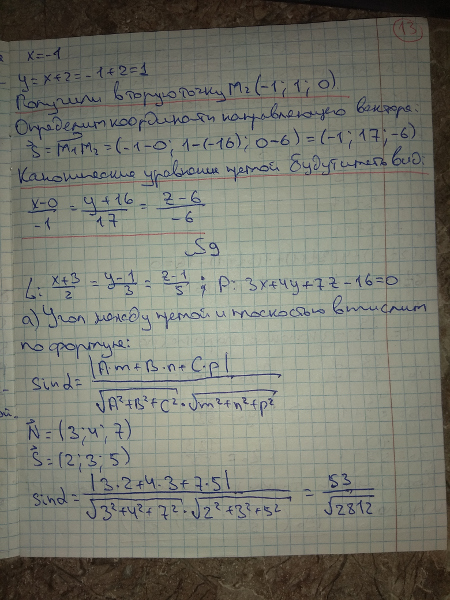 13
x=-1
y=x+2=-1+2=1
Получили вторую точку M₂(-1; 1; 0)
Определим координаты направляющего вектора:
S⃗=M₁M₂=(-1-0; 1-(-16); 0-6)=(-1; 17; -6)
Канонические уравнения прямой будут иметь вид:
(x-0)/(-1) = (y+16)/17 = (z-6)/(-6)
№9
L: (x+3)/2 = (y-1)/3 = (z-1)/5 ; P: 3x+4y+7z-16=0
а) Угол между прямой и плоскостью вычислим
по формуле:
sinα= |A·m+B·n+C·p| / (√(A²+B²+C²)·√(m²+n²+p²))
N⃗=(3; 4; 7)
S⃗=(2; 3; 5)
sinα= |3·2+4·3+7·5| / (√(3²+4²+7²)·√(2²+3²+5²)) = 53/√2812